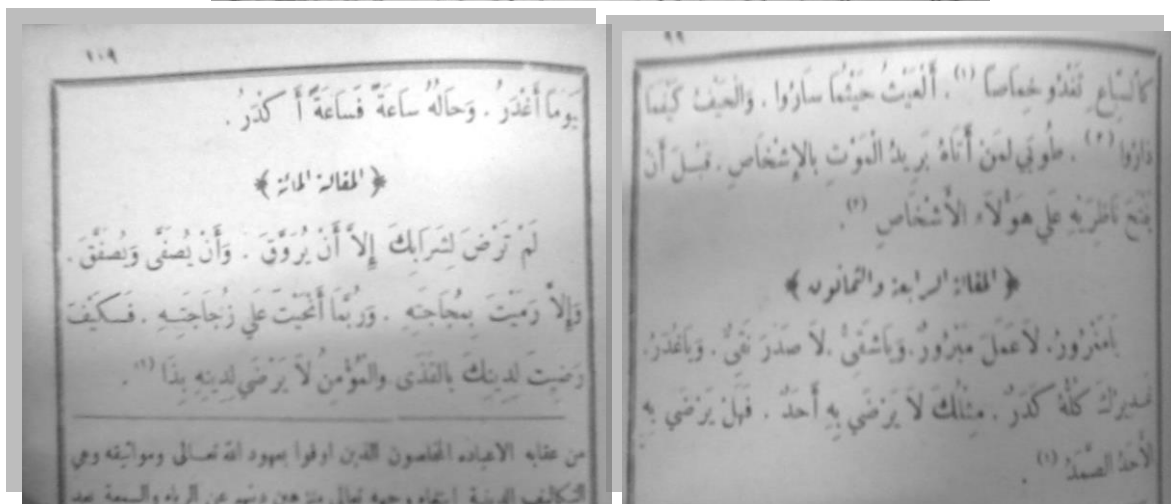 ٩٩
كَالسِّبَاعِ تَغْدُو خِمَاصًا (١) . أَلْعَيْثُ حَيْثُمَا سَارُوا . وَالْحَيْفُ كَيْفَمَا
دَارُوا (٢) . طُوبَى لِمَنْ أَتَاهُ بَرِيدُ الْمَوْتِ بِالْإِشْخَاصِ . قَبْلَ أَنْ
يَفْتَحَ نَاظِرَيْهِ عَلَى هَؤُلَاءِ الْأَشْخَاصِ (٣)
﴿ المقالة الرابعة والثمانون ﴾
يَامَغْرُورُ. لَا عَمَلَ مَبْرُورٌ. وَيَاشَقِىُّ. لَا صَدْرَ نَقِىٌّ . وَيَاغُدَرُ.
كُلُّهُ كَدَرٌ . مِثْلُكَ لَا يَرْضَى بِهِ أَحَدٌ . فَهَلْ يَرْضَى بِهِ
الْأَحَدُ الصَّمَدُ (١) .
١٠٩
يَوْمًا أَغْدَرُ . وَحَالُهُ سَاعَةً فَسَاعَةً أَكْدَرُ .
﴿ المقالة المائة ﴾
لَمْ تَرْضَ لِشَرَابِكَ إِلاَّ أَنْ يُرَوَّقَ . وَأَنْ يُصَفَّى وَيُصَفَّقَ .
وَإِلاَّ رَمَيْتَ بِمُجَاجَتِهِ . وَرُبَّمَا أَنْحَيْتَ عَلَى زُجَاجَتِهِ . فَكَيْفَ
رَضِيتَ لِدِينِكَ بِالْقَذَى وَالْمُؤْمِنُ لَا يَرْضَى لِدِينِهِ بِذَا (١) .
من عقابه الاعباده المخلصون الذين اوفوا بعهود الله تعالى ومواثيقه وهي
التكاليف الدينية ابتغاء وجهه تعالى منزهين دينهم عن الرياء والسمعة بعد